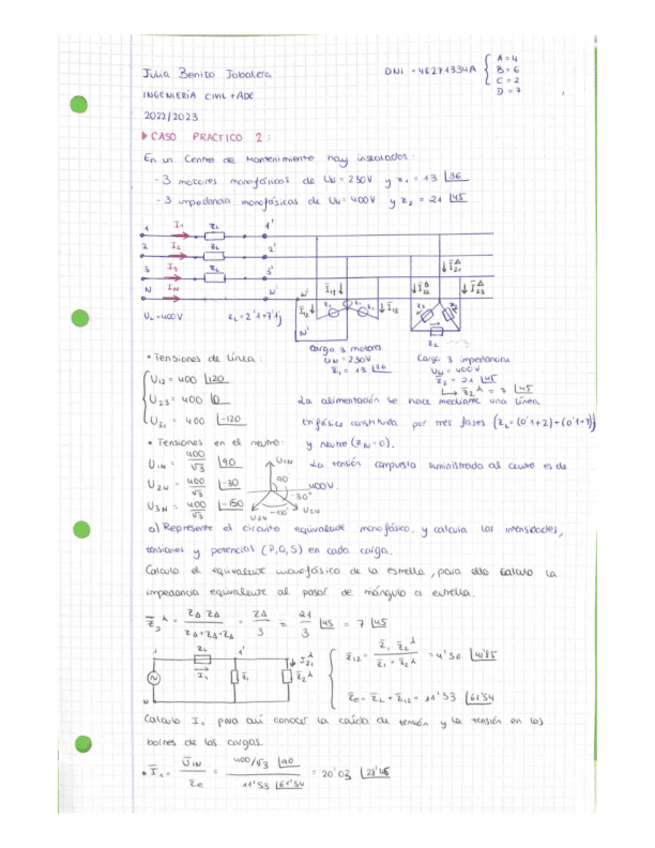 Julia Benito Jabalera
DNI = 46271334A
A = 4
B = 6
C = 2
D = 7
INGENIERÍA CIVIL + ADE
2022/2023
CASO PRÁCTICO 2:
En un Centro de Mantenimiento hay instalados:
- 3 motores monofásicos de UN = 230V y z₁ = 13 |36
- 3 impedancia monofásicas de UN = 400V y z₂ = 21 |45
1 I₁ ZL 1'
2 I₂ ZL 2'
3 I₃ ZL 3'
N IN N'
UL = 400V
ZL = 2'1+7'1j
Carga 3 motores
UN = 230V
Z̄₁ = 13 |36
Carga 3 impedancias
UN = 400V
Z̄₂ = 21 |45
• Tensiones de línea:
U₁₂ = 400 |120
U₂₃ = 400 |0
U₃₁ = 400 |-120
La alimentación se hace mediante una línea
trifásica constituida por tres fases (ZL=(0'1+2)+(0'1+7)j
y neutro (ZN=0).
• Tensiones en el neutro:
U₁N = 400/√3 |90
U₂N = 400/√3 |-30
U₃N = 400/√3 |-150
U₁N
90
-30°
-150°
U₃N
U₂N
La tensión compuesta suministrada al centro es de
400V.
a) Represente el circuito equivalente monofásico, y calcula las intensidades,
tensiones y potencias (P,Q,S) en cada carga.
Calculo el equivalente monofásico de la estrella, para ello calculo la
impedancia equivalente al pasar de triángulo a estrella.
Z̄₂^λ = ZΔ ZΔ / ZΔ+ZΔ+ZΔ = ZΔ/3 = 21/3 |45 = 7 |45
Z̄₁₂ = Z̄₁ Z̄₂^λ / Z̄₁ + Z̄₂^λ = 4'56 |41'85
Z̄e = Z̄L + Z̄₁₂ = 11'53 |61'54
Calculo I₁ para así conocer la caída de tensión y la tensión en los
bornes de las cargas.
• Ī₁ = Ū₁N / Z̄e = 400/√3 |90 / 11'53 |61'54 = 20'03 |28'45